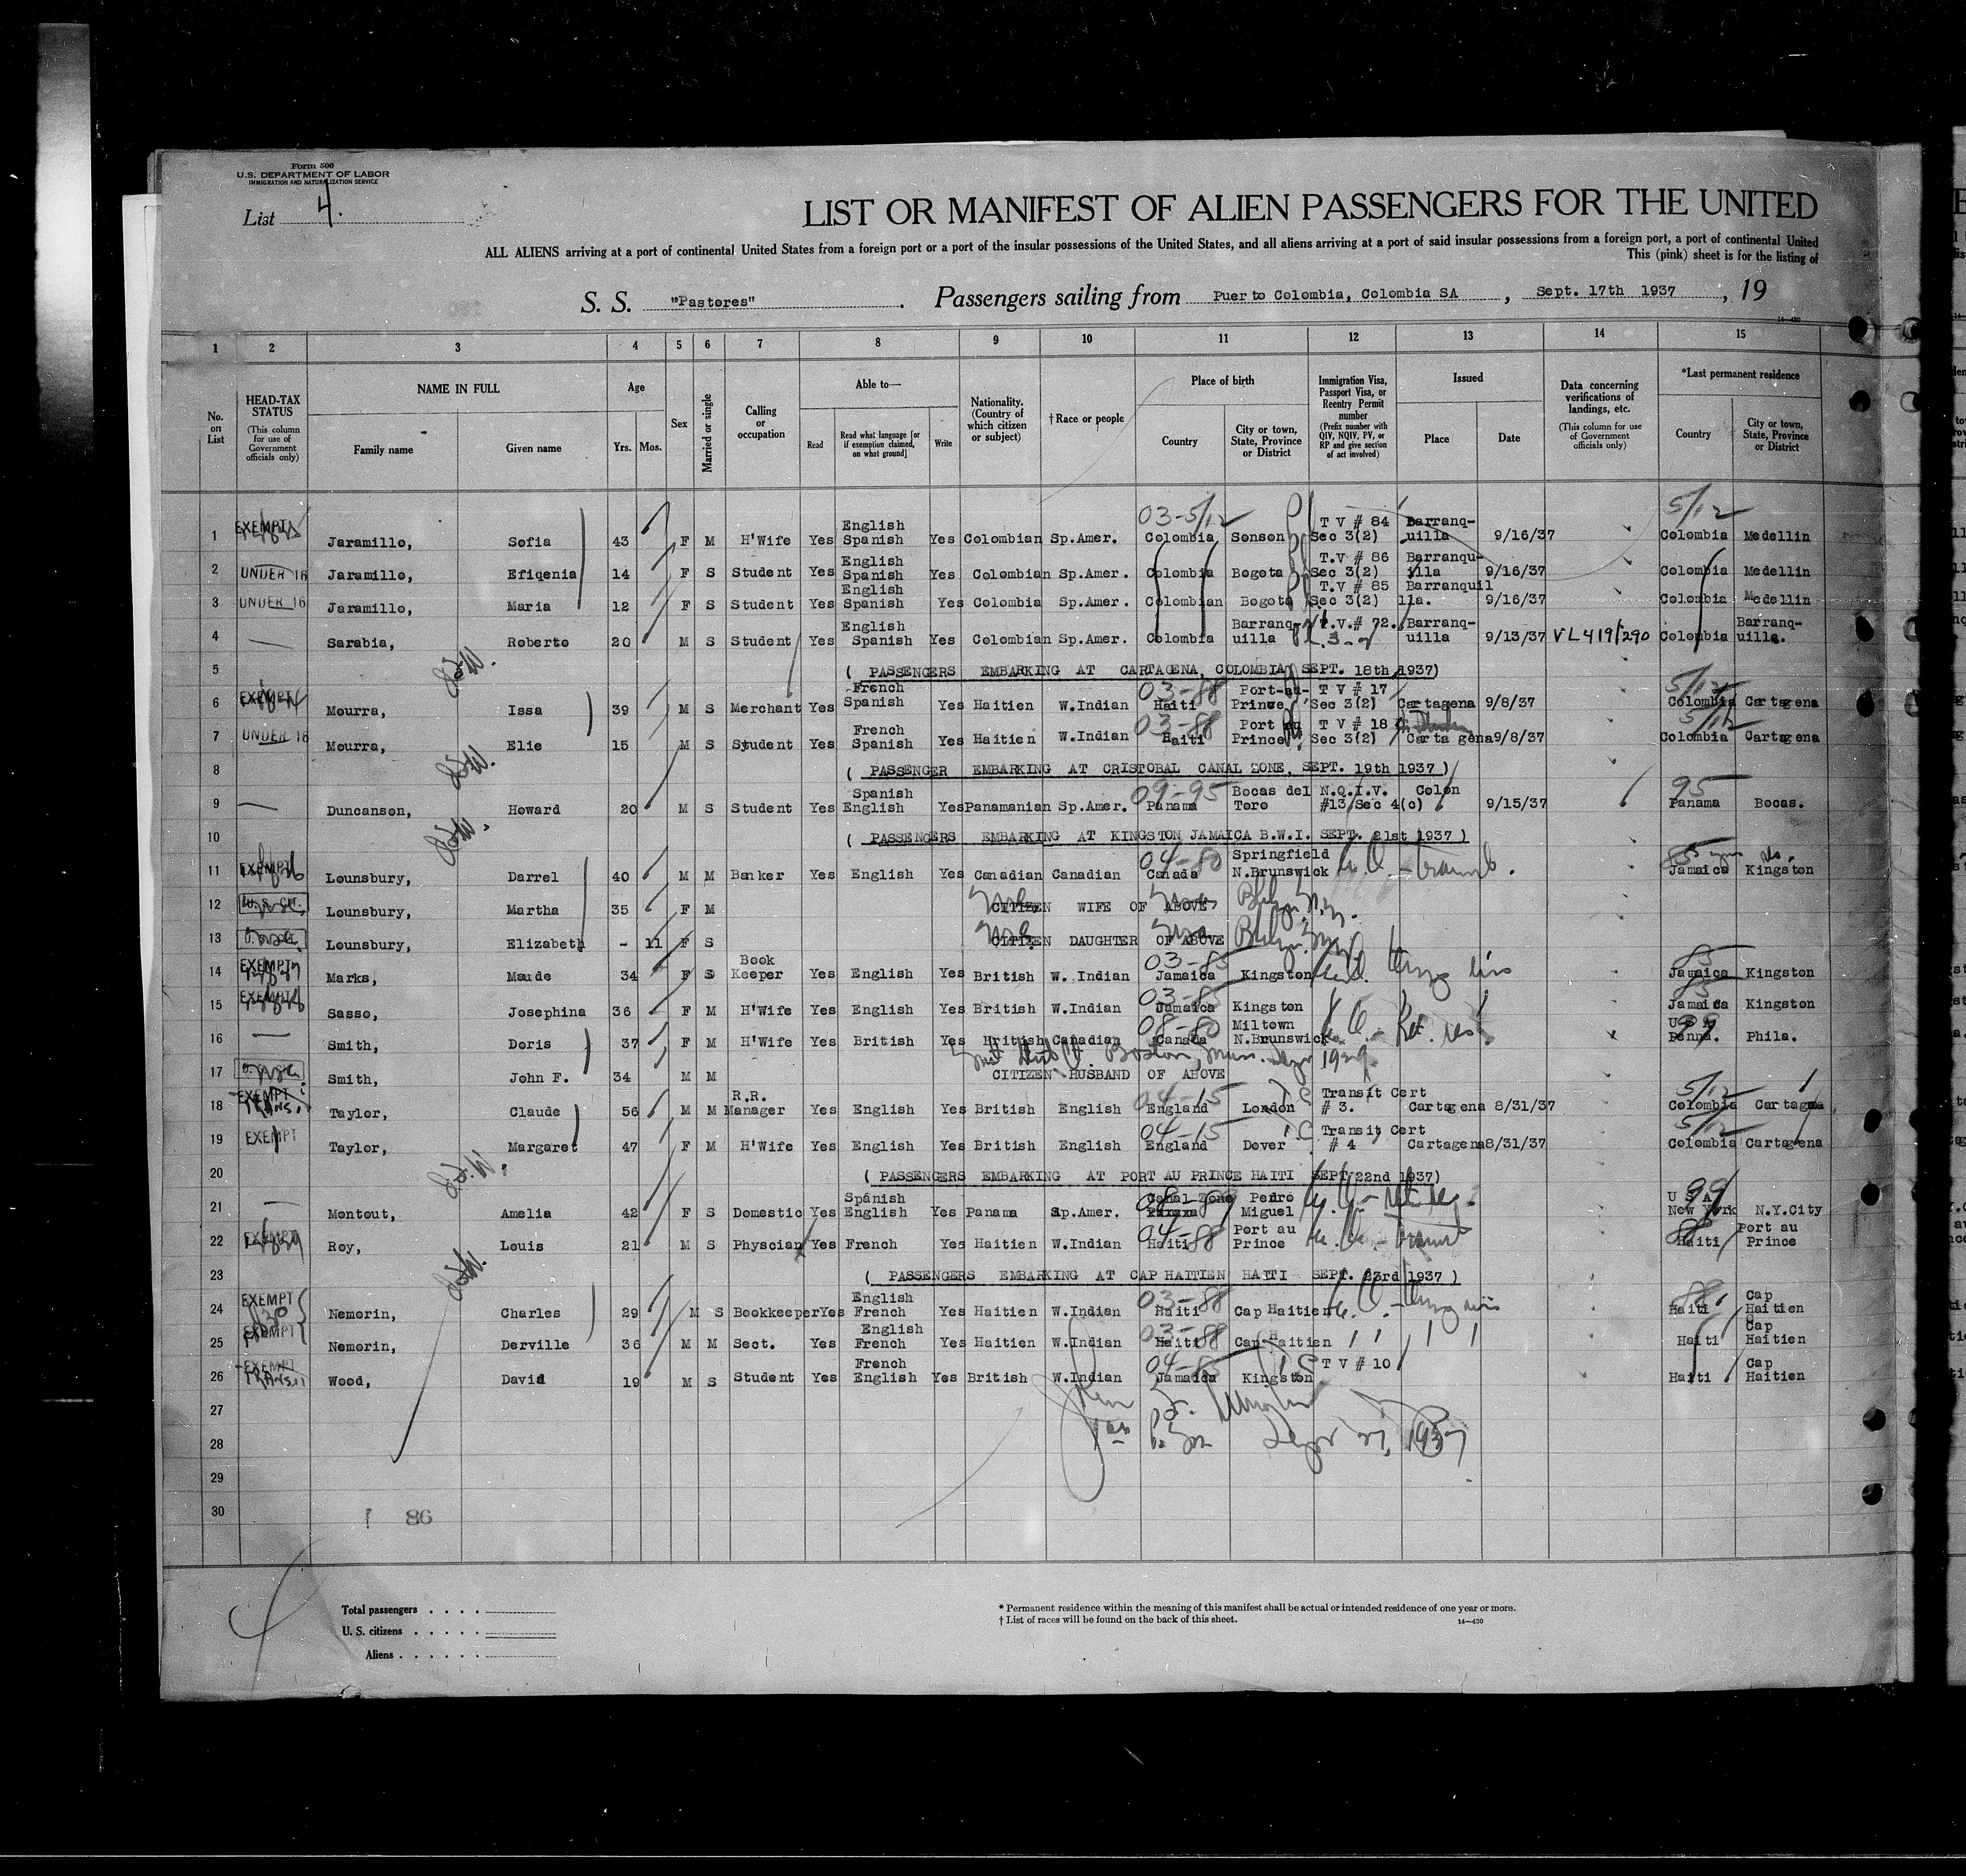 Form 500
U.S. DEPARTMENT OF LABOR
IMMIGRATION AND NATURALIZATION SERVICE
List 4.
LIST OR MANIFEST OF ALIEN PASSENGERS FOR THE UNITED
ALL ALIENS arriving at a port of continental United States from a foreign port or a port of the insular possessions of the United States, and all aliens arriving at a port of said insular possessions from a foreign port, a port of continental United
This (pink) sheet is for the listing of
S. S. "Pastores". Passengers sailing from Puerto Colombia, Colombia SA, Sept. 17th 1937, 19
14—430
1 2 3 4 5 6 7 8 9 10 11 12 13 14 15
No. on List
HEAD-TAX STATUS (This column for use of Government officials only)
NAME IN FULL Family name Given name
Age Yrs. Mos.
Sex
Married or single
Calling or occupation
Able to— Read Read what language [or if exemption claimed, on what ground] Write
Nationality. (Country of which citizen or subject)
†Race or people
Place of birth Country City or town, State, Province or District
Immigration Visa, Passport Visa, or Reentry Permit number (Prefix number with QIV, NQIV, PV, or RP and give section of act involved)
Issued Place Date
Data concerning verifications of landings, etc. (This column for use of Government officials only)
*Last permanent residence Country City or town, State, Province or District
1 EXEMPT Jaramillo, Sofia 43 F M H'Wife Yes English Spanish Yes Colombian Sp.Amer. 03-5/12 Colombia Sonson T V # 84 Sec 3(2) Barranq-uilla 9/16/37 5/12 Colombia Medellin
2 UNDER 16 Jaramillo, Efiqenia 14 F S Student Yes English Spanish Yes Colombian Sp.Amer. Colombia Bogota T.V # 86 Sec 3(2) Barranqu-illa 9/16/37 Colombia Medellin
3 UNDER 16 Jaramillo, Maria 12 F S Student Yes English Spanish Yes Colombia Sp.Amer. Colombian Bogota T.V # 85 Sec 3(2) Barranquil lla. 9/16/37 Colombia Medellin
4 — Sarabia, Roberto 20 M S Student Yes English Spanish Yes Colombian Sp.Amer. Colombia Barranq-uilla T.V.# 72. Barranq-uilla 9/13/37 VL419/290 Colombia Barranq-uilla.
5 ( PASSENGERS EMBARKING AT CARTAGENA, COLOMBIA SEPT. 18th 1937)
6 EXEMPT Mourra, Issa 39 M S Merchant Yes French Spanish Yes Haitien W.Indian 03-88 Haiti Port-au-Prince T V # 17 Sec 3(2) Cartagena 9/8/37 5/12 Colombia Cartagena
7 UNDER 16 Mourra, Elie 15 M S Student Yes French Spanish Yes Haitien W.Indian 03-88 Haiti Port au Prince T V # 18 Sec 3(2) Cartagena 9/8/37 5/12 Colombia Cartagena
8 ( PASSENGER EMBARKING AT CRISTOBAL CANAL ZONE, SEPT. 19th 1937 )
9 — Duncanson, Howard 20 M S Student Yes Spanish English Yes Panamanian Sp.Amer. 09-95 Panama Bocas del Toro N.Q.I.V. #13 Sec 4(c) Colon 9/15/37 95 Panama Bocas.
10 ( PASSENGERS EMBARKING AT KINGSTON JAMAICA B.W.I. SEPT. 21st 1937 )
11 EXEMPT Lounsbury, Darrel 40 M M Banker Yes English Yes Canadian Canadian 04-80 Canada Springfield N.Brunswick Jamaica Kingston
12 Lounsbury, Martha 35 F M CITIZEN WIFE OF ABOVE
13 Lounsbury, Elizabeth - 11 F S CITIZEN DAUGHTER OF ABOVE
14 EXEMPT Marks, Maude 34 F S Book Keeper Yes English Yes British W. Indian 03-85 Jamaica Kingston 85 Jamaica Kingston
15 EXEMPT Sasso, Josephina 36 F M H'Wife Yes English Yes British W.Indian 03-85 Jamaica Kingston 85 Jamaica Kingston
16 — Smith, Doris 37 F M H'Wife Yes British Yes British Canadian 08-80 Canada Miltown N.Brunswick U S A Penna. 99 Phila.
Boston, Mass. 1929
17 Smith, John F. 34 M M CITIZEN HUSBAND OF ABOVE
18 EXEMPT TRANSIT Taylor, Claude 56 M M R.R. Manager Yes English Yes British English 04-15 England London Transit Cert # 3. Cartagena 8/31/37 5/12 Colombia Cartagena
19 EXEMPT Taylor, Margaret 47 F M H'Wife Yes English Yes British English 04-15 England Dover Transit Cert # 4 Cartagena 8/31/37 5/12 Colombia Cartagena
20 ( PASSENGERS EMBARKING AT PORT AU PRINCE HAITI SEPT 22nd 1937)
21 — Montout, Amelia 42 F S Domestic Yes Spanish English Yes Panama Sp.Amer. Canal Zone Panama Pedro Miguel U S A New York 99 N.Y.City
22 EXEMPT Roy, Louis 21 M S Physcian Yes French Yes Haitien W.Indian 04-88 Haiti Port au Prince 88 Haiti Port au Prince
23 ( PASSENGERS EMBARKING AT CAP HAITIEN HAITI SEPT. 23rd 1937 )
24 EXEMPT Nemorin, Charles 29 M S Bookkeeper Yes English French Yes Haitien W.Indian 03-88 Haiti Cap Haitien 88 Haiti Cap Haitien
25 EXEMPT Nemorin, Derville 36 M M Sect. Yes English French Yes Haitien W.Indian 03-88 Haiti Cap Haitien Haiti Cap Haitien
26 EXEMPT TRANSIT Wood, David 19 M S Student Yes French English Yes British W.Indian 04-85 Jamaica Kingston T V # 10 Haiti Cap Haitien
27
28 Sept 27, 1937
29
30
86
Total passengers . . . .
U. S. citizens . . . . .
Aliens . . . . . .
* Permanent residence within the meaning of this manifest shall be actual or intended residence of one year or more.
† List of races will be found on the back of this sheet.
14—430